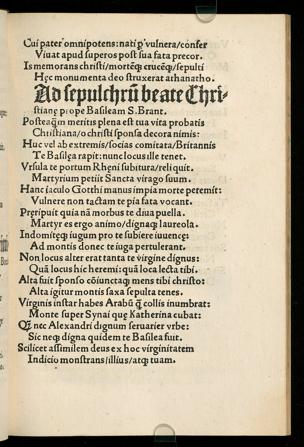 Cui pater omnipotens: nati ꝑ vulnera/confer
Viuat apud superos post sua fata precor.
Is memorans christi/mortēqꝫ crucēqꝫ/sepulti
Hęc monumenta deo struxerat athanatho.
Ad sepulchrū beate Chri-
stianę prope Basileam S. Brant.
Posteaqͣꝫ meritis plena est tua vita probatis
Christiana/o christi sponsa decora nimis:
Huc vel ab extremis/socias comitata/Britannis
Te Basilea rapit: nunc locus ille tenet.
Vrsula te portum Rheni subitura/reliquit.
Martyrium petiit Sancta virago suum.
Hanc iaculo Gotthi manus impia morte peremit:
Vulnere non tactam te pia fata vocant.
Pręripuit quia nā morbus te diua puella.
Martyr es ergo animo/dignaqꝫ laureola.
Indomiteqꝫ iugum pro te subiere iuuencę:
Ad montis donec te iuga pertulerant.
Non locus alter erat tanta te virgine dignus:
Quā locus hic heremi: quā loca lecta tibi.
Alta fuit sponso cōiunctaqꝫ mens tibi christo:
Alta igitur montis saxa sepulta tenes.
Virginis instar habes Arabū qͣ̄ collis inumbrat:
Monte super Synai quę Katherina cubat:
Qꝫ nec Alexandri dignum seruarier vrbe:
Sic neqꝫ digna quidem te Basilea fuit.
Scilicet assimilem deus ex hoc virginitatem
Indicio monstrans/illius/atqꝫ tuam.